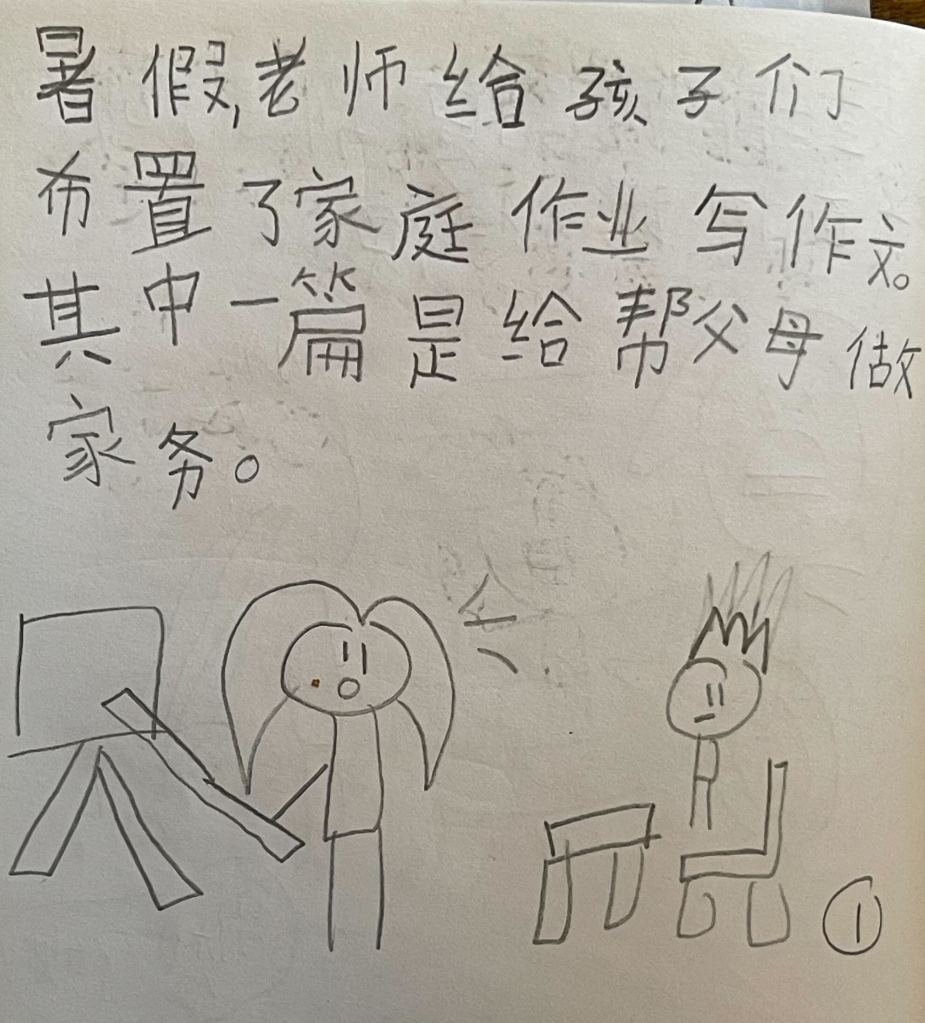 暑假,老师给孩子们
布置了家庭作业写作文。
其中一篇是给帮父母做
家务。
①